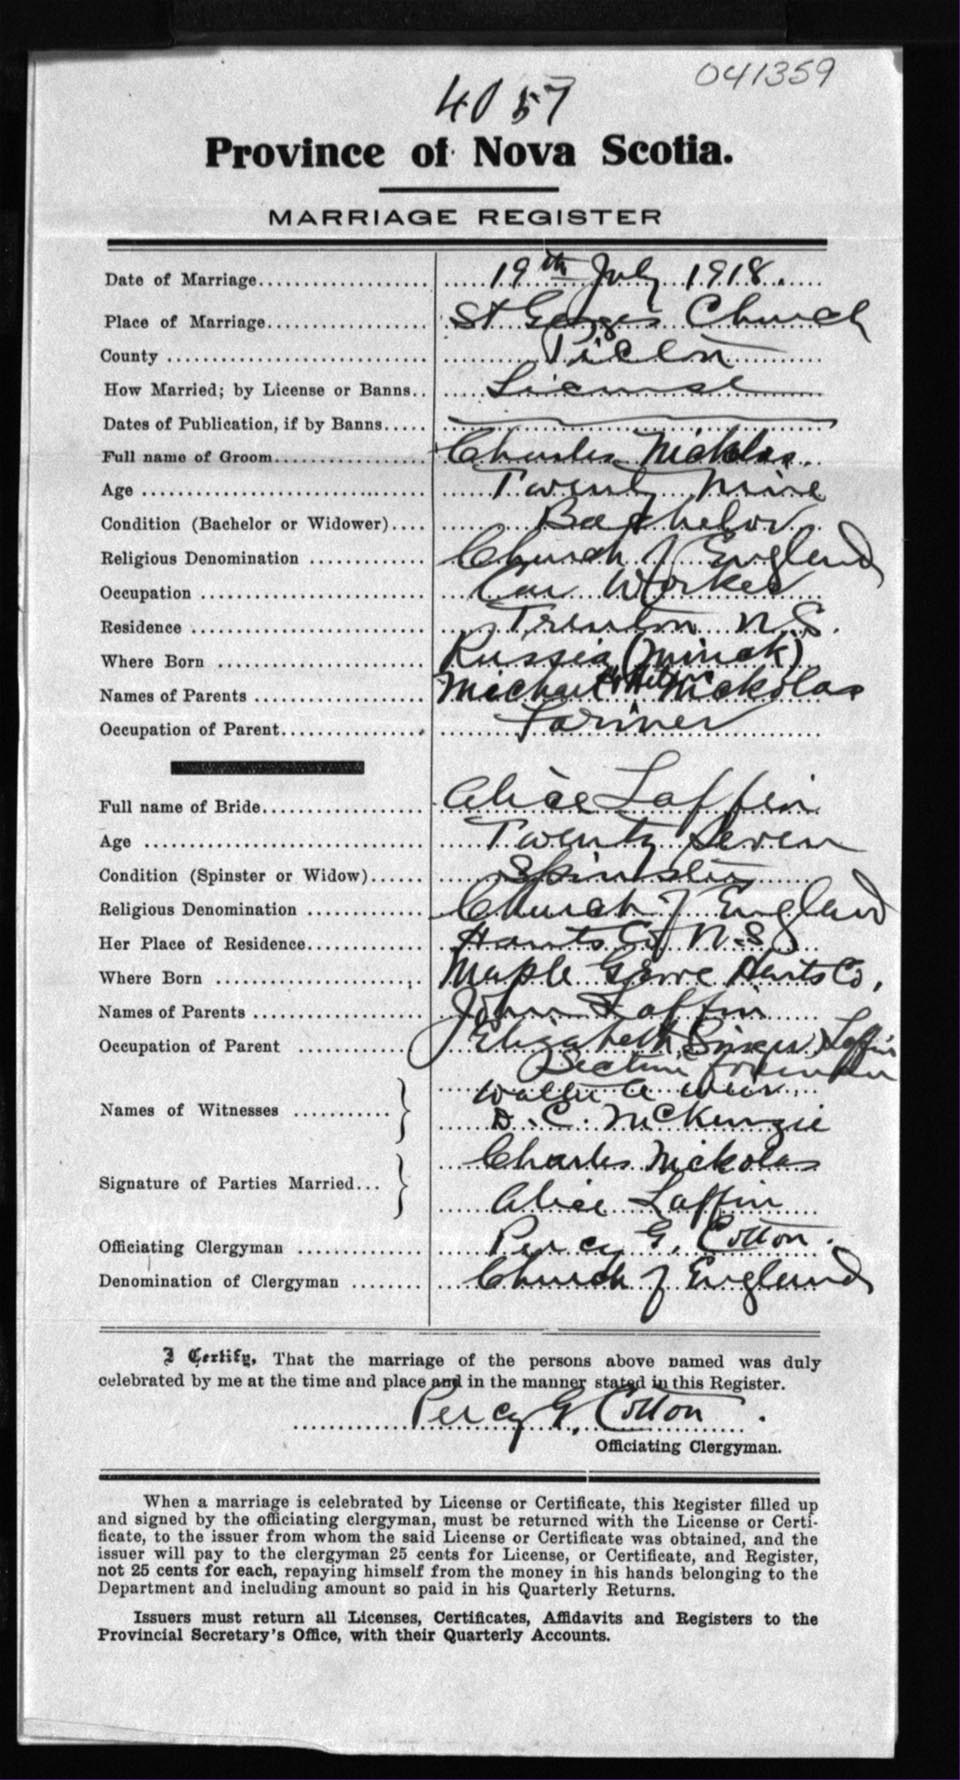 041359
4057
Province of Nova Scotia.
MARRIAGE REGISTER
Date of Marriage.................... 19th July 1918.
Place of Marriage................... St Georges Church
County ............................. Pictou
How Married; by License or Banns.. License
Dates of Publication, if by Banns.....
Full name of Groom.................. Charles Nickolas.
Age ................................ Twenty Nine
Condition (Bachelor or Widower).... Bachelor
Religious Denomination ............. Church of England
Occupation ......................... Car Worker
Residence .......................... Trenton N.S.
Where Born ......................... Russia (Minsk)
Names of Parents ................... Michael & Nickolas
Occupation of Parent................ Farmer
Full name of Bride.................. Alice Laffin
Age ................................ Twenty Seven
Condition (Spinster or Widow)...... Spinster
Religious Denomination ............. Church of England
Her Place of Residence............. Hants Co N.S
Where Born ......................... Maple Grove Hants Co.
Names of Parents ................... John Laffin
Occupation of Parent ............... Elizabeth Laffin
Section foreman
Names of Witnesses ........... Walter A Weir
D. C. McKenzie
Signature of Parties Married... Charles Nickolas
Alice Laffin
Officiating Clergyman .............. Percy G. Cotton.
Denomination of Clergyman ........ Church of England
I Certify, That the marriage of the persons above named was duly
celebrated by me at the time and place and in the manner stated in this Register.
Percy G. Cotton.
Officiating Clergyman.
When a marriage is celebrated by License or Certificate, this Register filled up
and signed by the officiating clergyman, must be returned with the License or Certi-
ficate, to the issuer from whom the said License or Certificate was obtained, and the
issuer will pay to the clergyman 25 cents for License, or Certificate, and Register,
not 25 cents for each, repaying himself from the money in his hands belonging to the
Department and including amount so paid in his Quarterly Returns.
Issuers must return all Licenses, Certificates, Affidavits and Registers to the
Provincial Secretary's Office, with their Quarterly Accounts.